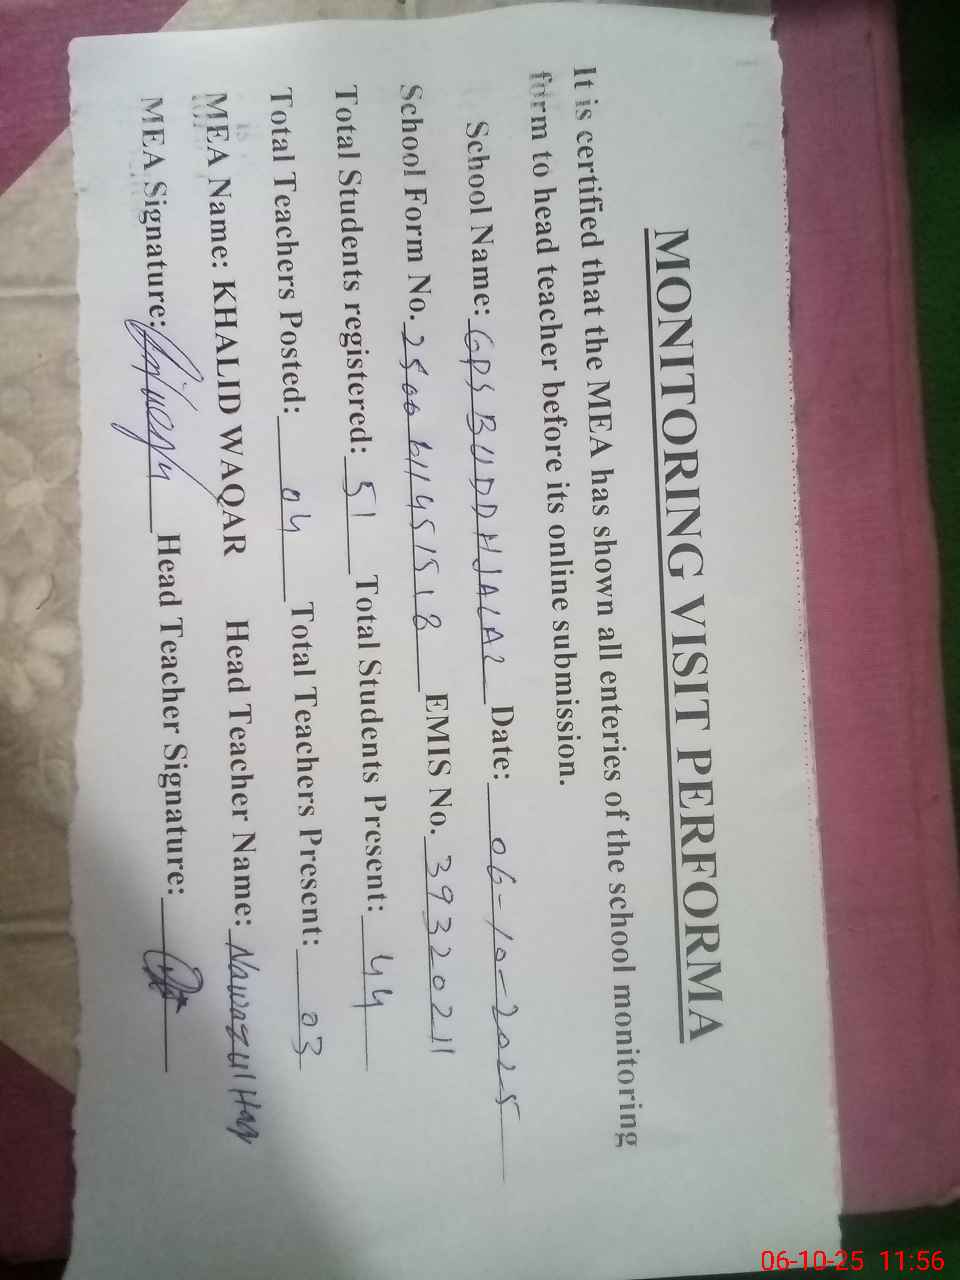 MONITORING VISIT PERFORMA
It is certified that the MEA has shown all enteries of the school monitoring
form to head teacher before its online submission.
School Name: GPS BUDDHJALAL Date: 06-10-2025
School Form No. 2500611451518 EMIS No. 39320211
Total Students registered: 51 Total Students Present: 44
Total Teachers Posted: 04 Total Teachers Present: 03
MEA Name: KHALID WAQAR Head Teacher Name: Nawazul Haq
MEA Signature: Head Teacher Signature:
06-10-25 11:56